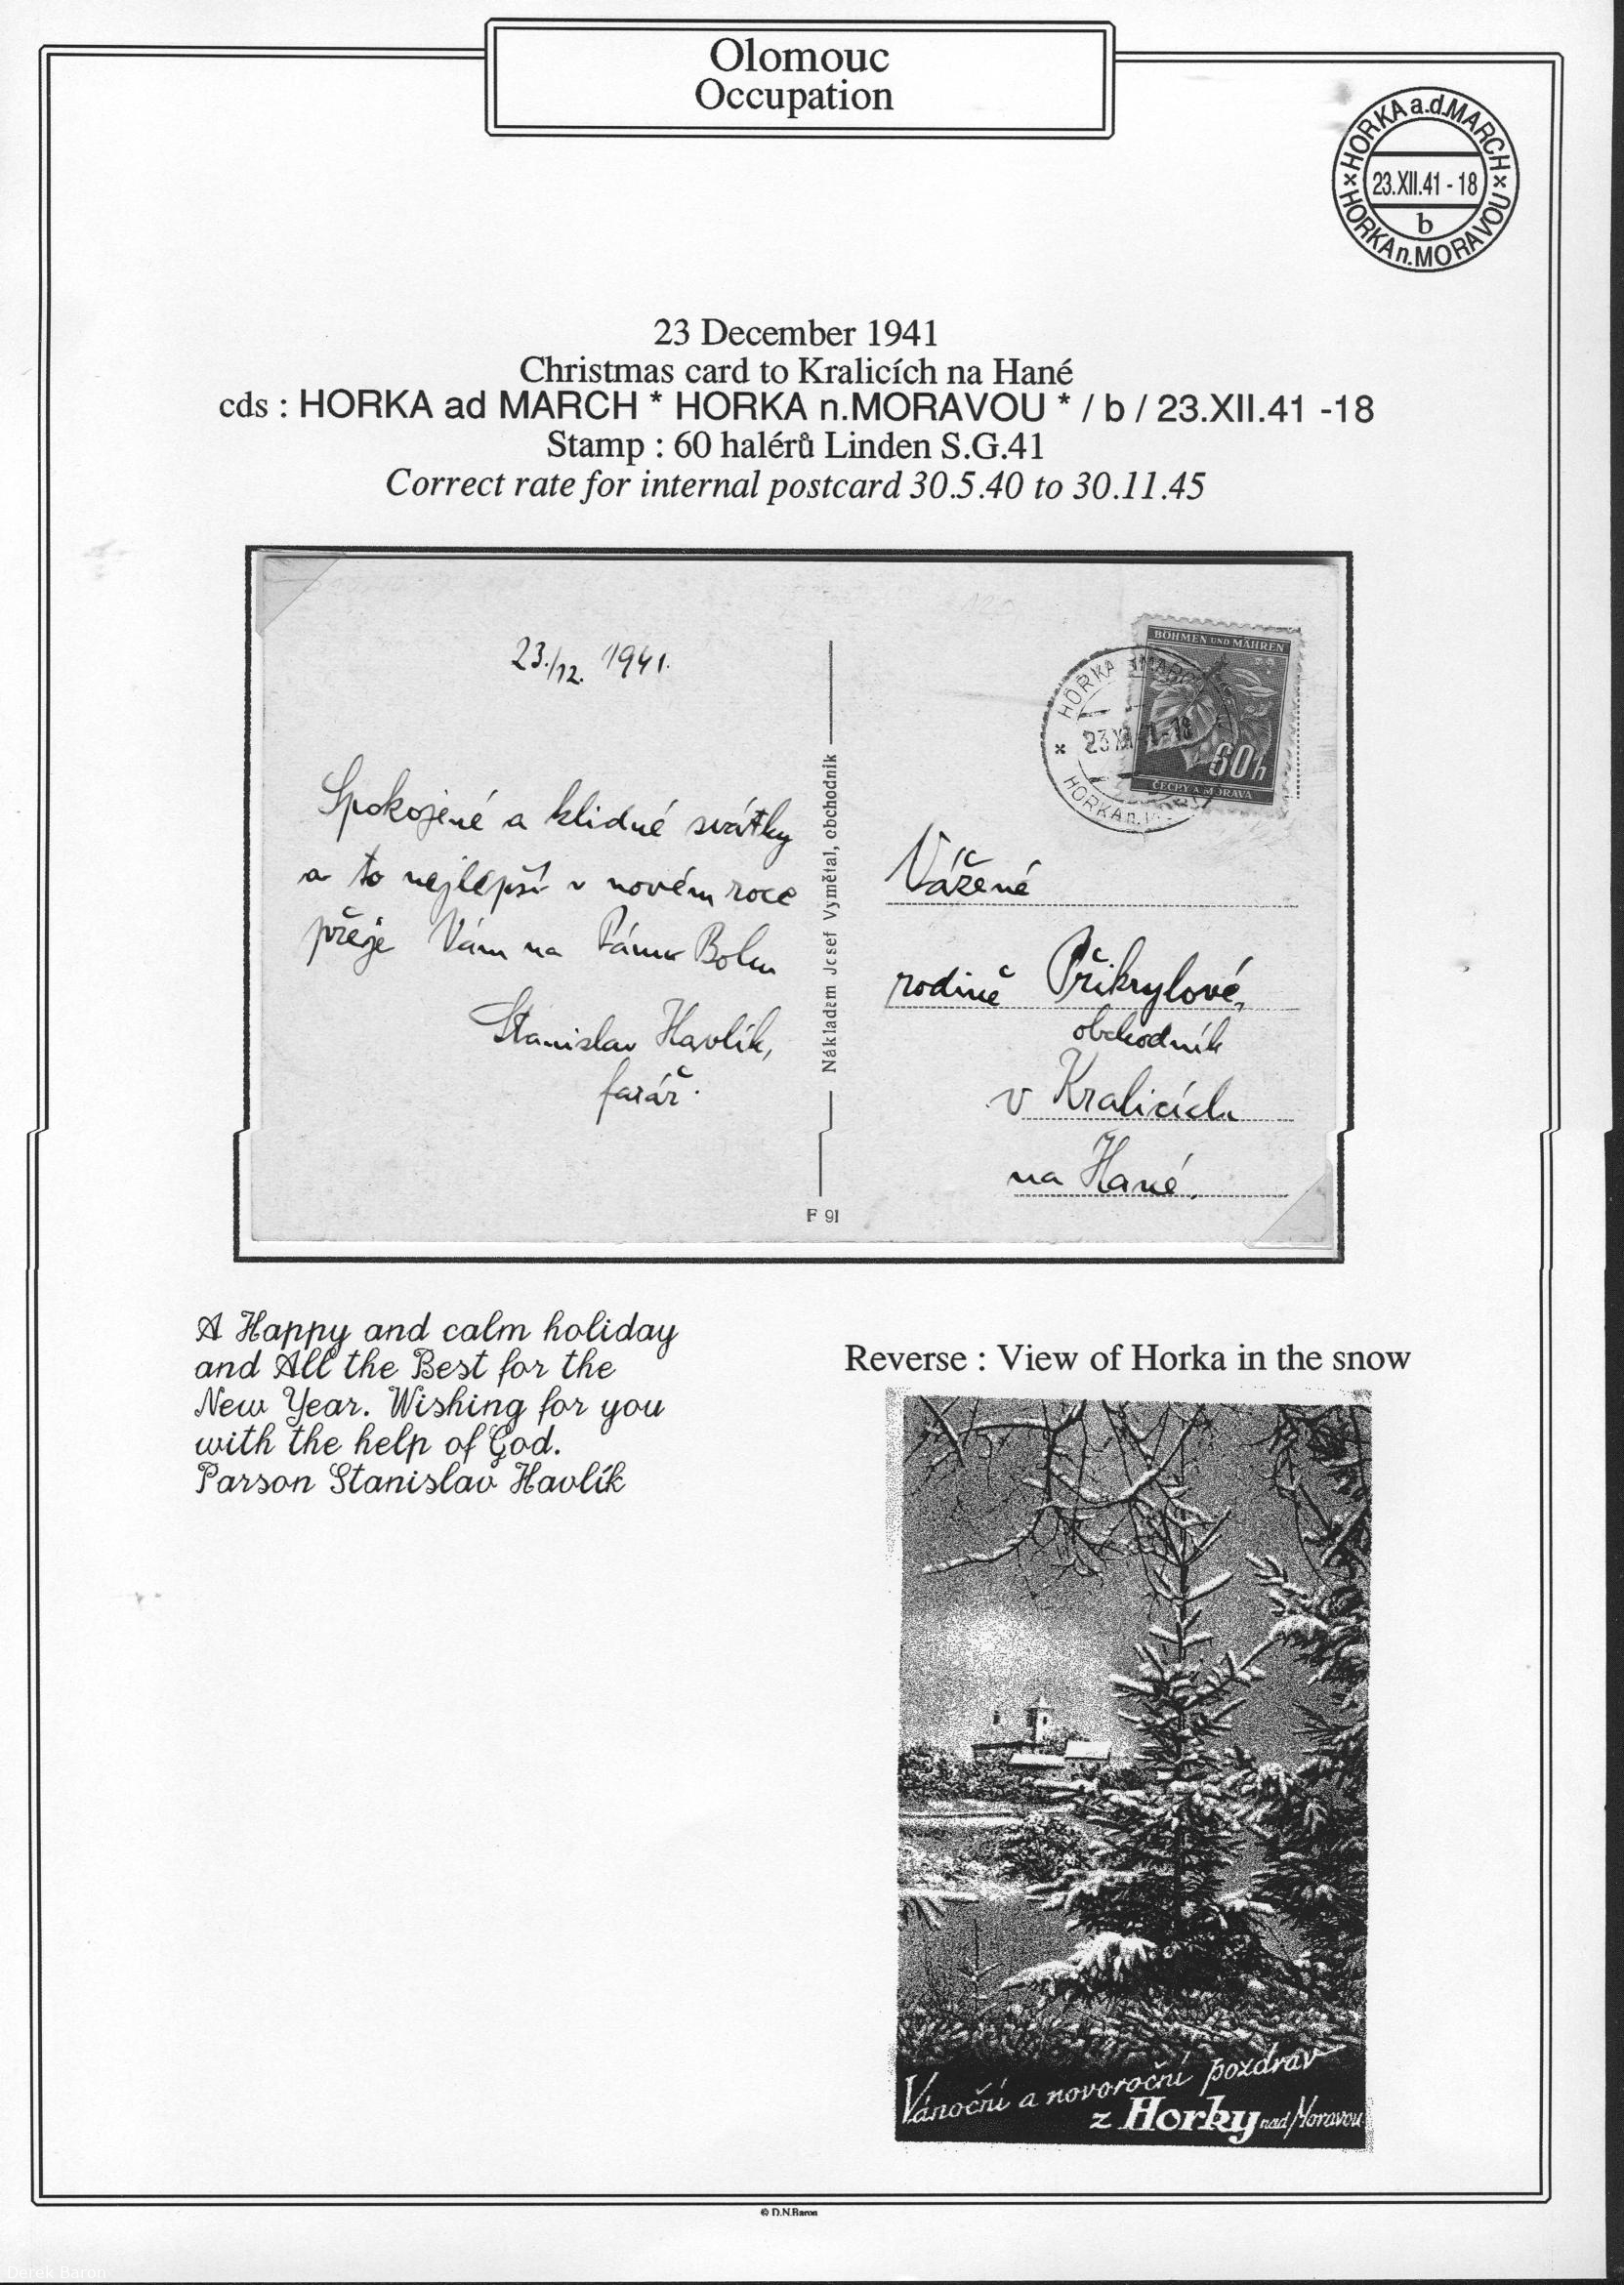 Olomouc
Occupation
HORKA a.d.MARCH
23.XII.41 - 18
b
HORKA n.MORAVOU
23 December 1941
Christmas card to Kralicích na Hané
cds : HORKA ad MARCH * HORKA n.MORAVOU * / b / 23.XII.41 -18
Stamp : 60 halérů Linden S.G.41
Correct rate for internal postcard 30.5.40 to 30.11.45
23./12. 1941.
Spokojené a klidné svátky
a to nejlepší v novém roce
přeje Vám na Pánu Bohu
Stanislav Havlík,
farář.
Nákladem Josef Vymětal, obchodník
F 91
BÖHMEN UND MÄHREN
60h
ČECHY A MORAVA
HORKA
23 XII - 18
HORKA n.
Vážené
rodině Přikrylové,
obchodník
v Kralicích
na Hané.
A Happy and calm holiday
and All the Best for the
New Year. Wishing for you
with the help of God.
Parson Stanislav Havlík
Reverse : View of Horka in the snow
Vánoční a novoroční pozdrav
z Horky nad Moravou
© D.N.Baron
Derek Baron